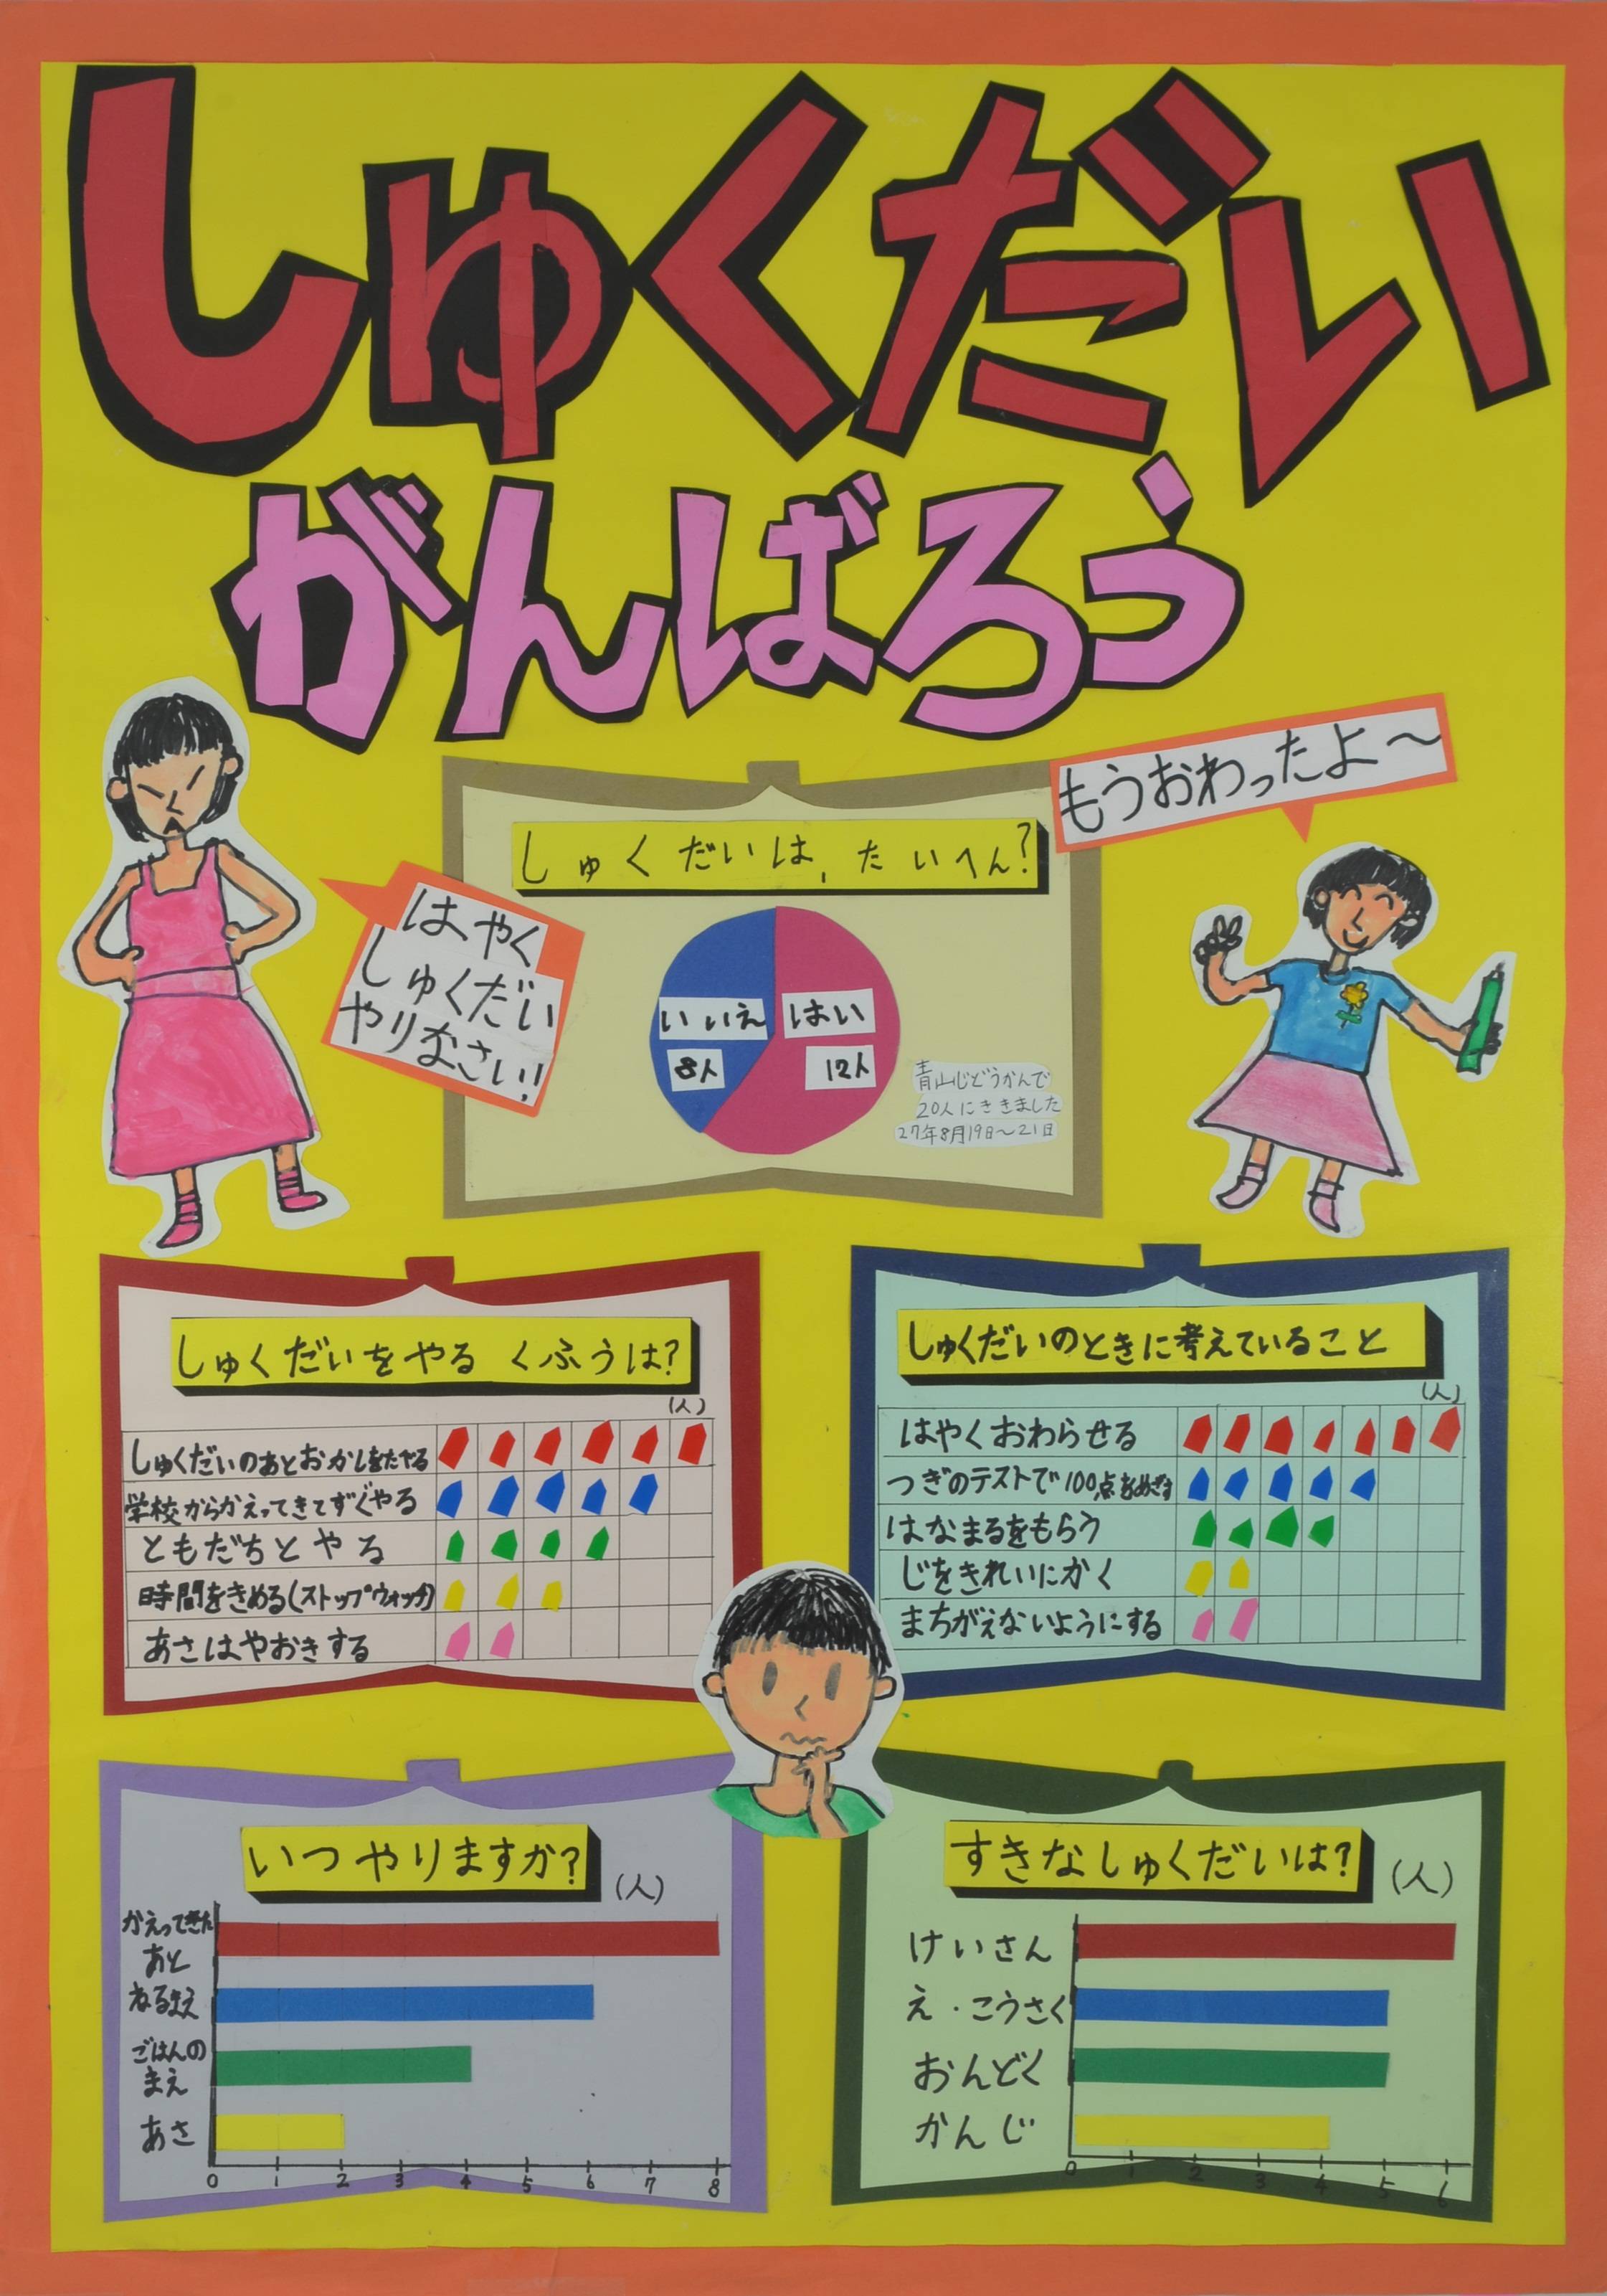 しゅくだい
がんばろう
もうおわったよ～
はやく
しゅくだい
やりなさい!
しゅくだいは,たいへん?
いいえ
8人
はい
12人
青山じどうかんで
20人にききました
27年8月19日～21日
しゅくだいをやる くふうは?
(人)
しゅくだいのあとおかしをたべる
学校からかえってきてすぐやる
ともだちとやる
時間をきめる(ストップウォッチ)
あさはやおきする
しゅくだいのときに考えていること
(人)
はやくおわらせる
つぎのテストで100点をめざす
はなまるをもらう
じをきれいにかく
まちがえないようにする
いつやりますか?
(人)
かえってきた
あと
ねるまえ
ごはんの
まえ
あさ
0 1 2 3 4 5 6 7 8
すきなしゅくだいは?
(人)
けいさん
え・こうさく
おんどく
かんじ
0 1 2 3 4 5 6